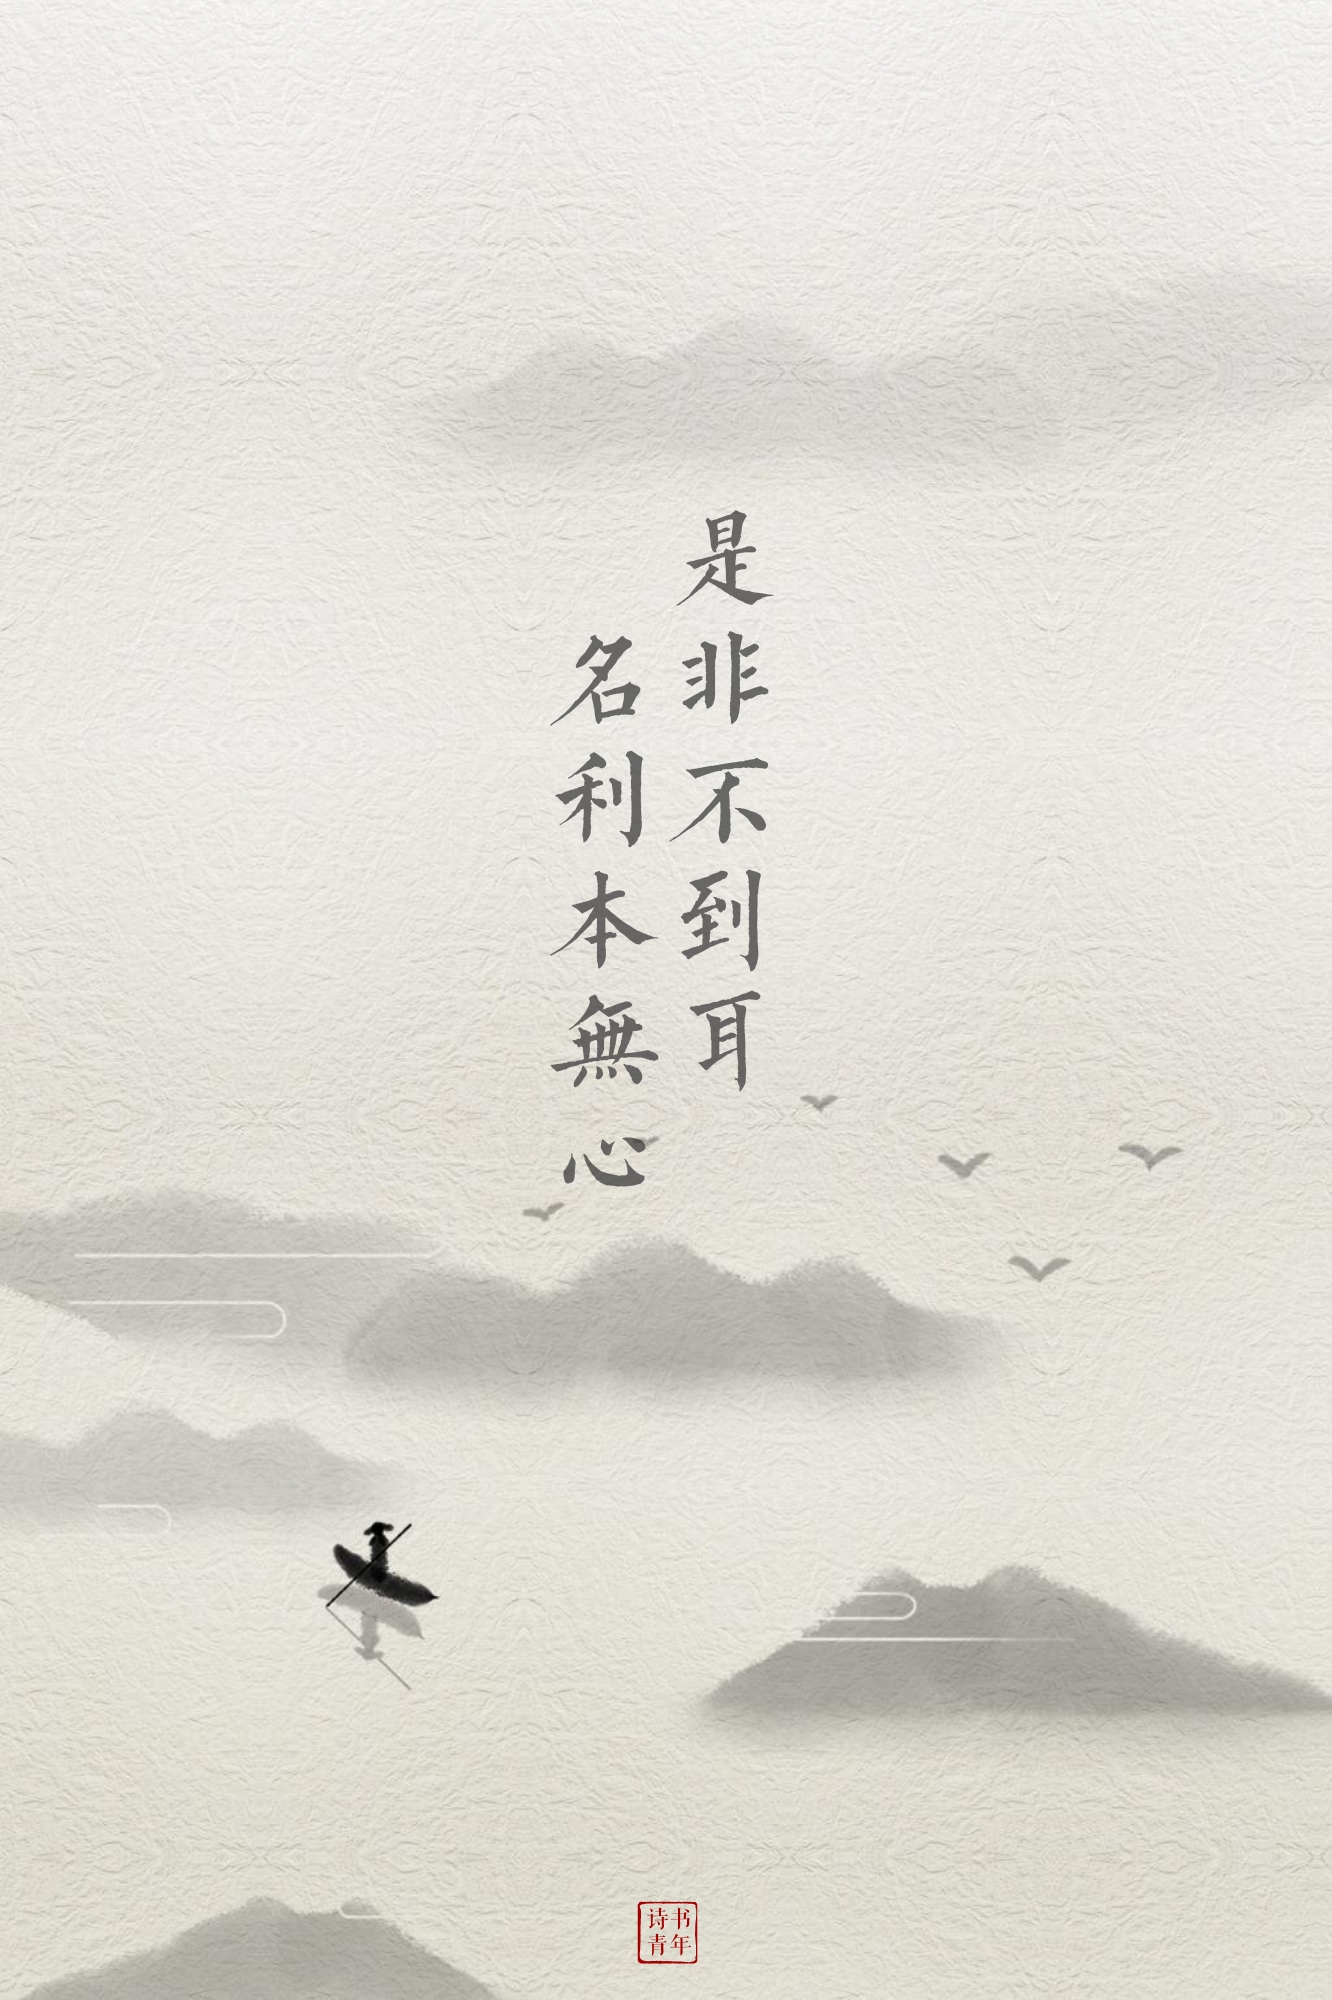 是非不到耳
名利本無心
诗书
青年